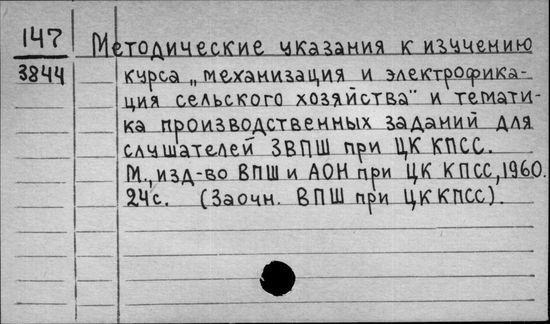 147
3844
Методические указания к изучению
курса „механизация и электрофика-
ция сельского хозяйства" и темати-
ка производственных заданий для
слушателей ЗВПШ при ЦК КПСС.
М., изд-во ВПШ и АОН при ЦК КПСС, 1960.
24с. (Заочн. ВПШ при ЦК КПСС).